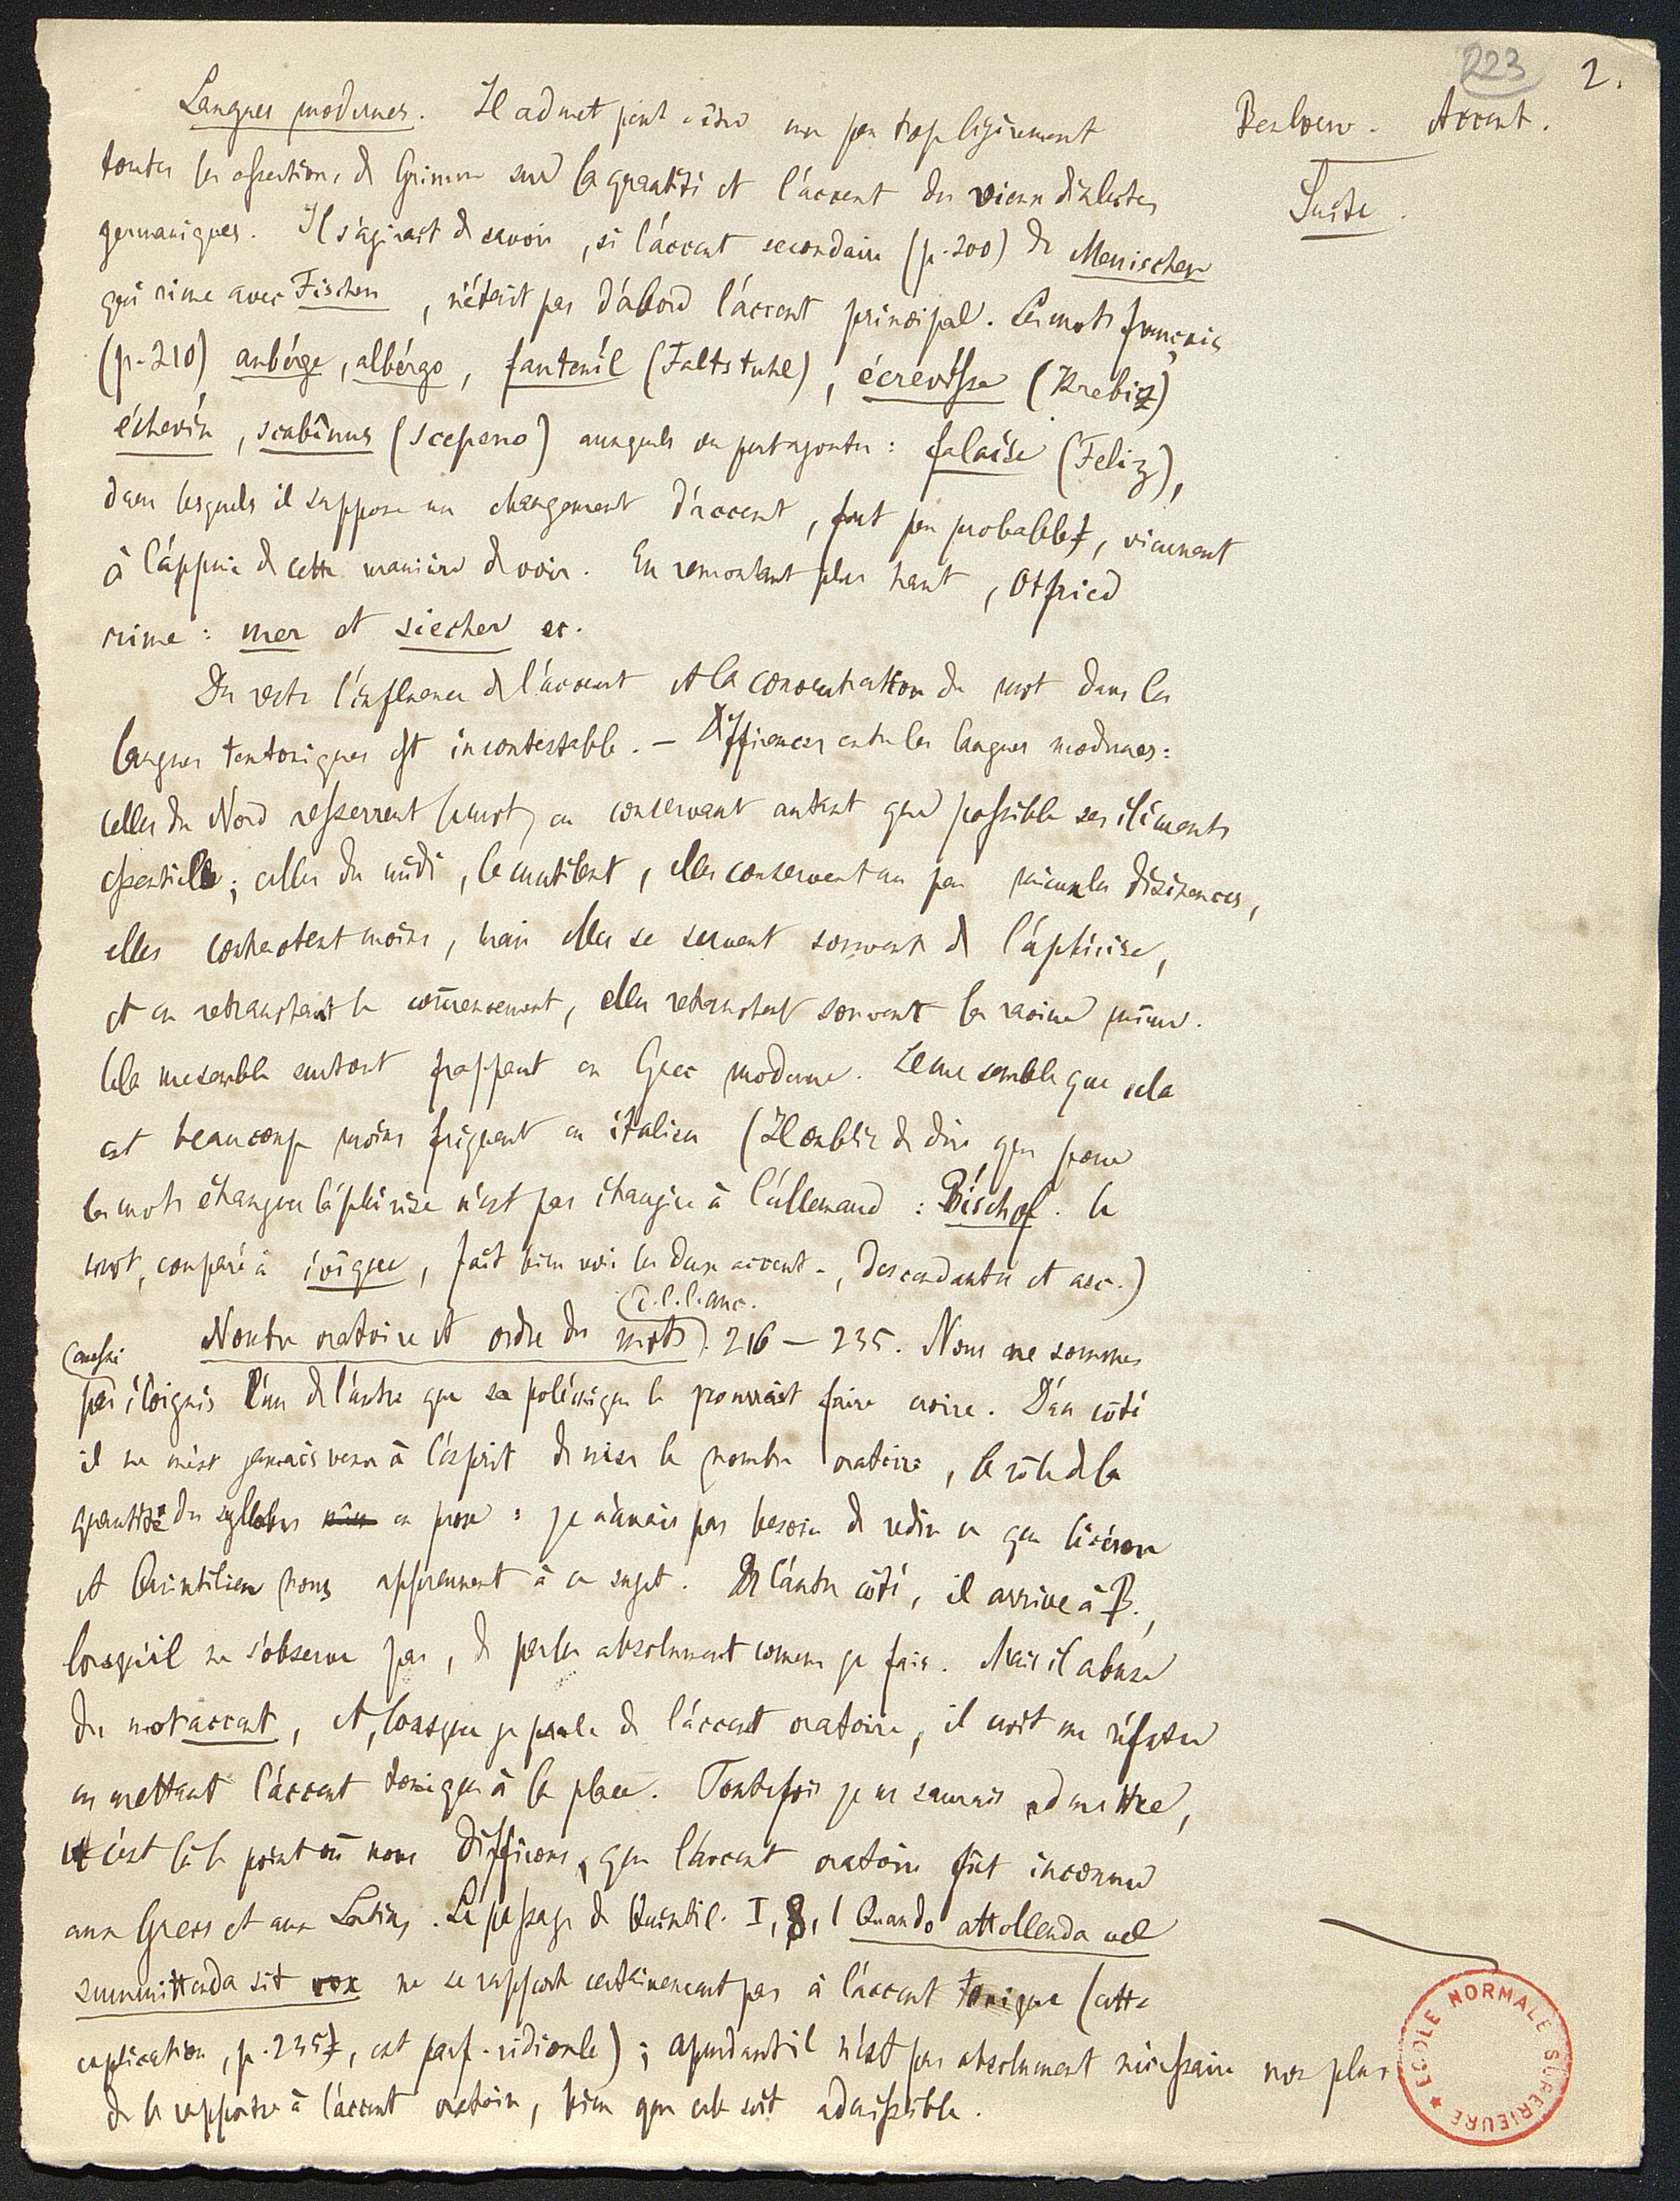 223 2.
Benloew. Accent.
Suite.
Langues modernes. Il admet peut-être un peu trop légèrement
toutes les assertions de Grimm sur la quantité et l'accent des vieux dialectes
germaniques. Il s'agirait de savoir, si l'accent secondaire (p. 200) de Mennischen
qui rime avec Fischen, n'était pas d'abord l'accent principal. Les mots français
(p. 210) aubérge, albérgo, fauteuíl (Faltstuhl), écrevísse (Krebiz)
échevín, scabînus (scepeno) auxquels on peut ajouter : falaíse (Feliz),
dans lesquels il suppose un changement d'accent, fort peu probable, viennent
à l'appui de cette manière de voir. En remontant plus haut, Otfried
rime : mer et siecher ec.
Du reste l'influence de l'accent et la concentration du mot dans les
langues teutoniques est incontestable. — Différences entre les langues modernes :
celles du Nord resserrent le mot, en conservant autant que possible ses éléments
essentiels ; celles du midi, le mutilent, elles conservent un peu mieux les désinences,
elles contractent moins, mais elles se servent souvent de l'aphérèse,
et en retranchant le commencement, elles retranchent souvent la racine même.
Cela me semble surtout frappant en Grec moderne. Il me semble que cela
est beaucoup moins fréquent en italien (Il oublie de dire que pour
les mots étrangers l'aphérèse n'est pas étrangère à l'allemand : Bíschof. Ce
mot, comparé à évêque, fait bien voir les deux accent-, descendante et asc.)
Nombre oratoire et ordre des mots (d. l. l. anc.). 216 — 235. Nous ne sommes
pas aussi éloignés l'un de l'autre que sa polémique le pourrait faire croire. D'un côté
il ne m'est jamais venu à l'esprit de nier le nombre oratoire, le rôle de la
quantité des syllabes en prose : je n'avais pas besoin de redire ce que Cicéron
et Quintilien nous apprennent à ce sujet. De l'autre côté, il arrive à B.,
lorsqu'il ne s'observe pas, de parler absolument comme je fais. Mais il abuse
du mot accent, et, lorsque je parle de l'accent oratoire, il croit me réfuter
en mettant l'accent tonique à la place. Toutefois je ne saurais admettre,
et c'est là le point où nous différons, que l'accent oratoire fût inconnu
aux Grecs et aux Latins. Le passage de Quintil. I, 8, 1 Quando attollenda vel
summittenda sit vox ne se rapporte certainement pas à l'accent tonique (cette
explication, p. 235, est parf. ridicule) ; cependant il n'est pas absolument nécessaire non plus
de le rapporter à l'accent oratoire, bien que cela soit admissible.
ECOLE NORMALE SUPERIEURE